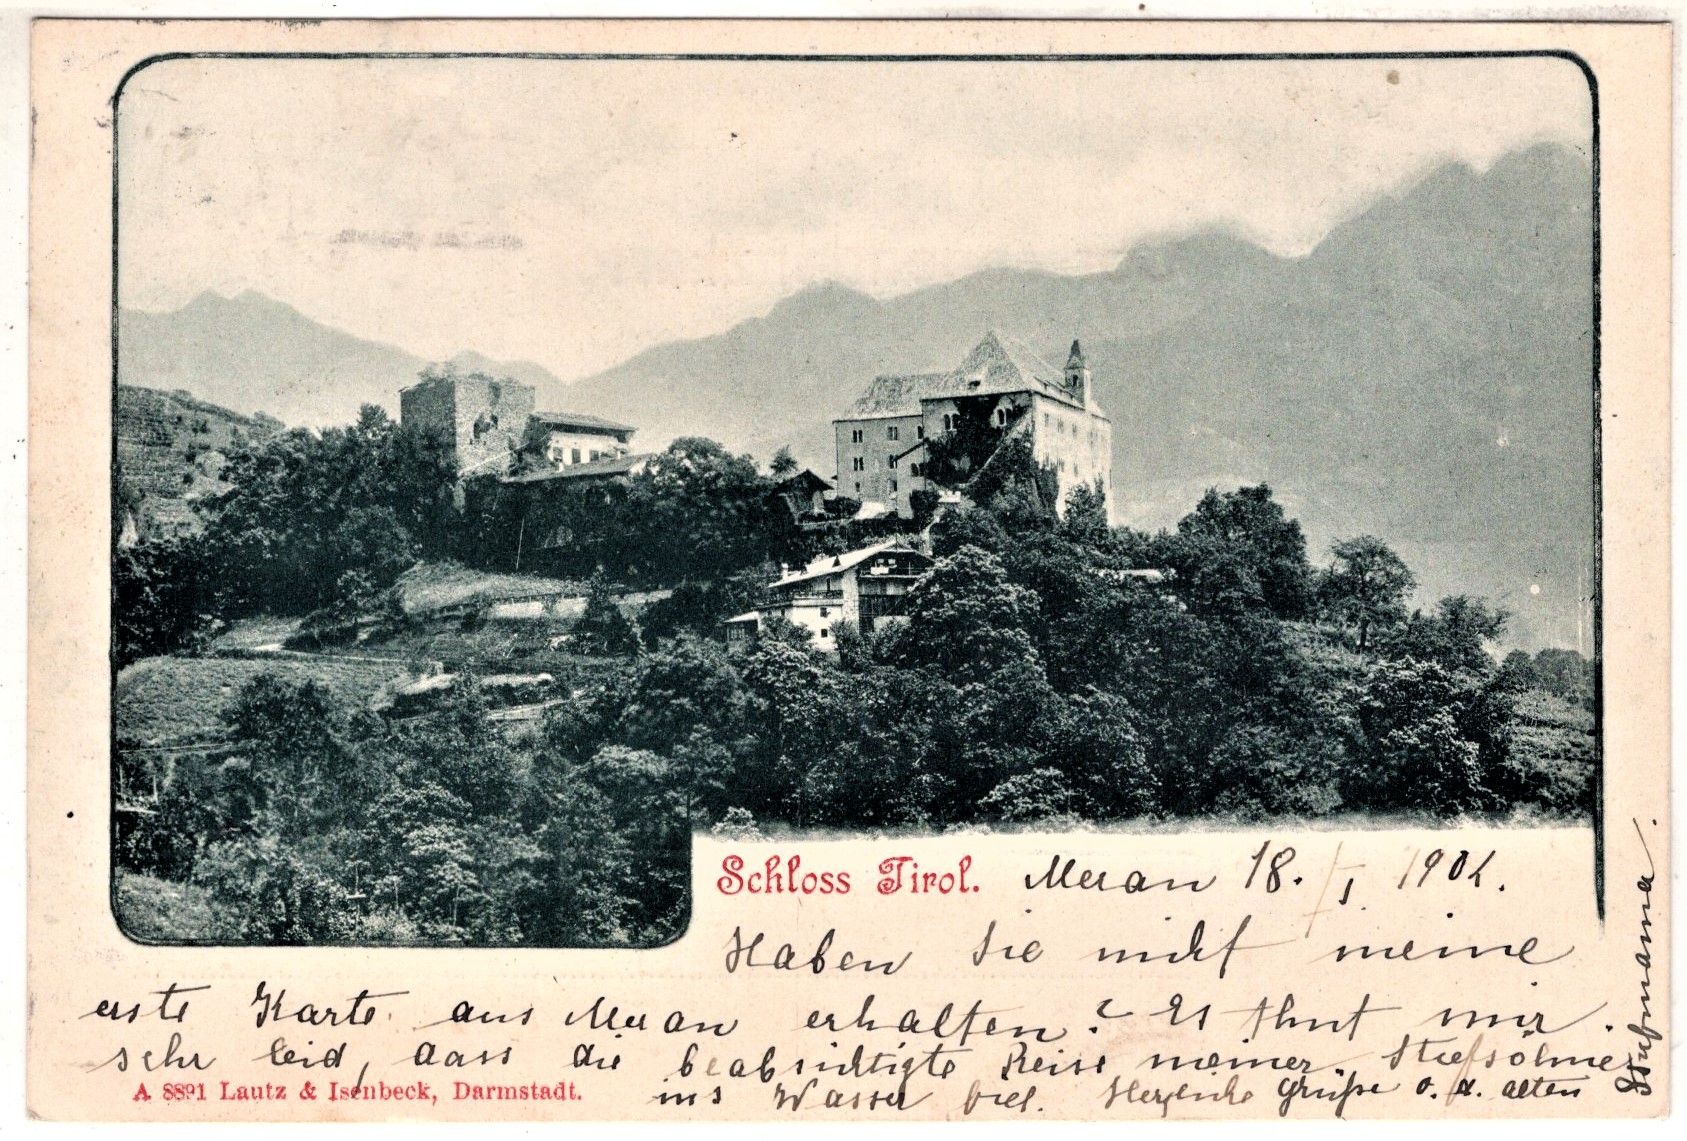 Schloss Tirol. Meran 18. I 1902.
Haben Sie nicht meine
erste Karte aus Meran erhalten? Es thut mir
sehr leid, dass die beabsichtigte Reise meiner Stiefsöhne
ins Wasser fiel. Herzliche Grüße v. d. alten
A 8891 Lautz & Isenbeck, Darmstadt.